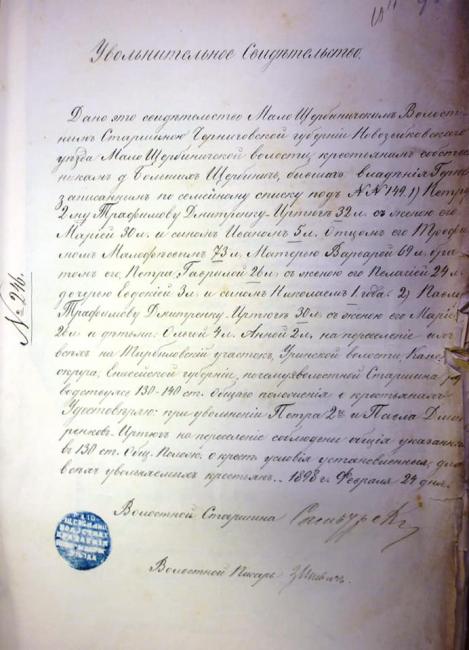 Увольнительное Свидѣтельство.
Дано это свидѣтельство Мало Щербиничскимъ Волост-
нымъ Старшиною Черниговской губерніи Новозыбковскаго
уѣзда Мало Щербиничской волости, крестьянамъ собствен
никамъ д. Большихъ Щербиничъ, бывшаго владѣнія
записаннымъ по семейному списку подъ №№ 149. 1) Петру
2му Трафилову Дмитренку-Иртюгъ 32 л. съ женою его
Маріей 30 л. и сыномъ Иваномъ 5 л. Отцомъ его Трофи
момъ 73 л. Матерью Варварой 69 л. бра
томъ его Петра Гавриломъ 26 л. съ женою его Пелагіей 24 л.
дочерью Евдокіей 3 л. и сыномъ Николаемъ 1 года. 2) Павлу
Трафилову Дмитренку-Иртюгъ 30 л. съ женою его Маріей
26 л. и дѣтьми: Ольгой 4 л. Анной 2 л. на переселеніе ихъ
всѣхъ на участокъ, Уринской волости, Канск.
округа, Енисейской губерніи, посему волостной Старшина ру
водствуясь 130-140 ст. Общаго положенія о крестьянахъ
Удостовѣряю: при увольненіи Петра 2го и Павла Дмит
ренковъ-Иртюгъ на переселеніе соблюдены общія указанныя
въ 130 ст. Общ. Полож. о крест. условія установленныя для
всѣхъ увольняемыхъ крестьянъ. 1898 г. Февраля 24 дня.
№ 246.
Волостной Старшина
Волостной Писарь